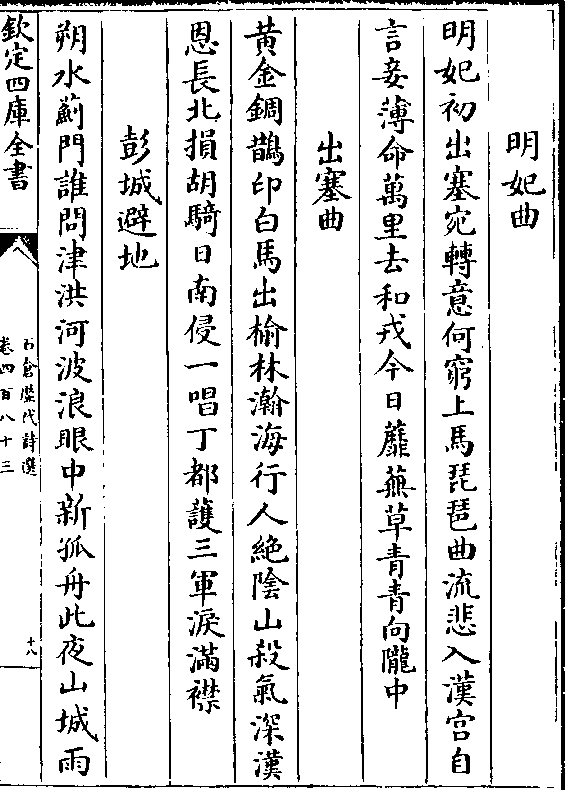 明妃曲
明妃初出塞宛轉意何窮上馬琵琶曲流悲入漢宮自
言妾薄命萬里去和戎今日蘼蕪草青青向隴中
出塞曲
黃金錭鵲印白馬出榆林瀚海行人絕陰山殺氣深漢
恩長北損胡騎日南侵一唱丁都護三軍淚滿襟
彭城避地
朔水薊門誰問津洪河波浪眼中新孤舟此夜山城雨
欽定四庫全書
石倉歷代詩選
卷四百八十三
十八